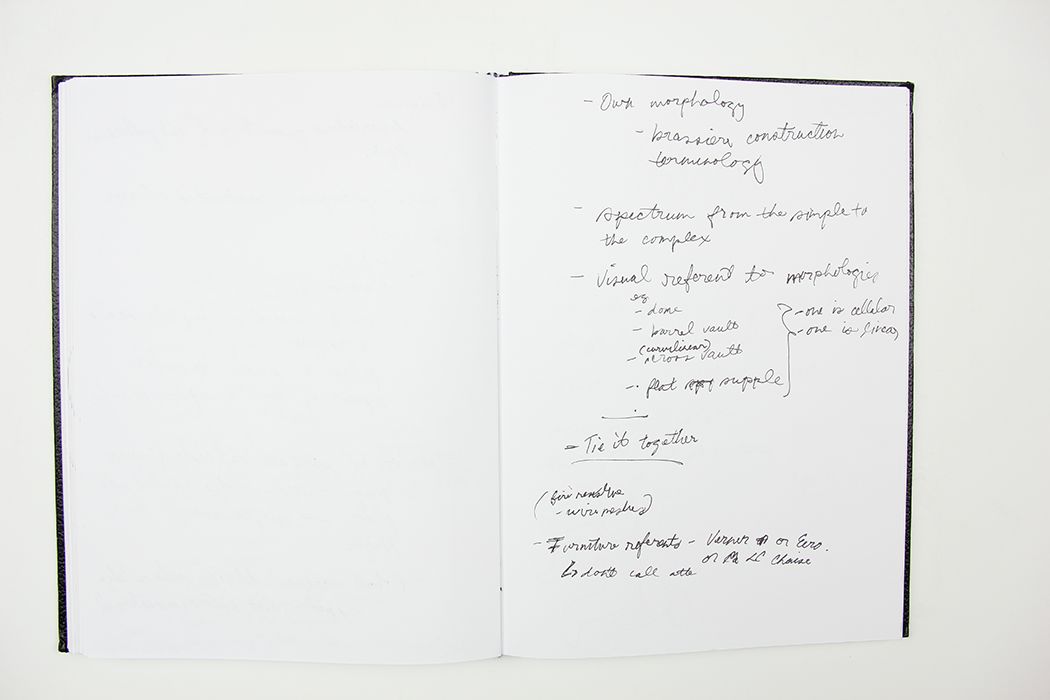 - Own morphology
- brassiere construction
terminology
- spectrum from the simple to
the complex
- Visual referent to morphologies
eg.
- dome
- barrel vault
(curvilinear)
- cross vault
- flat supple
- one is cellular
- one is linear
- Tie it together
- wire meshes)
- Furniture referents - Verner or Eero.
or LC Chaise
don't call